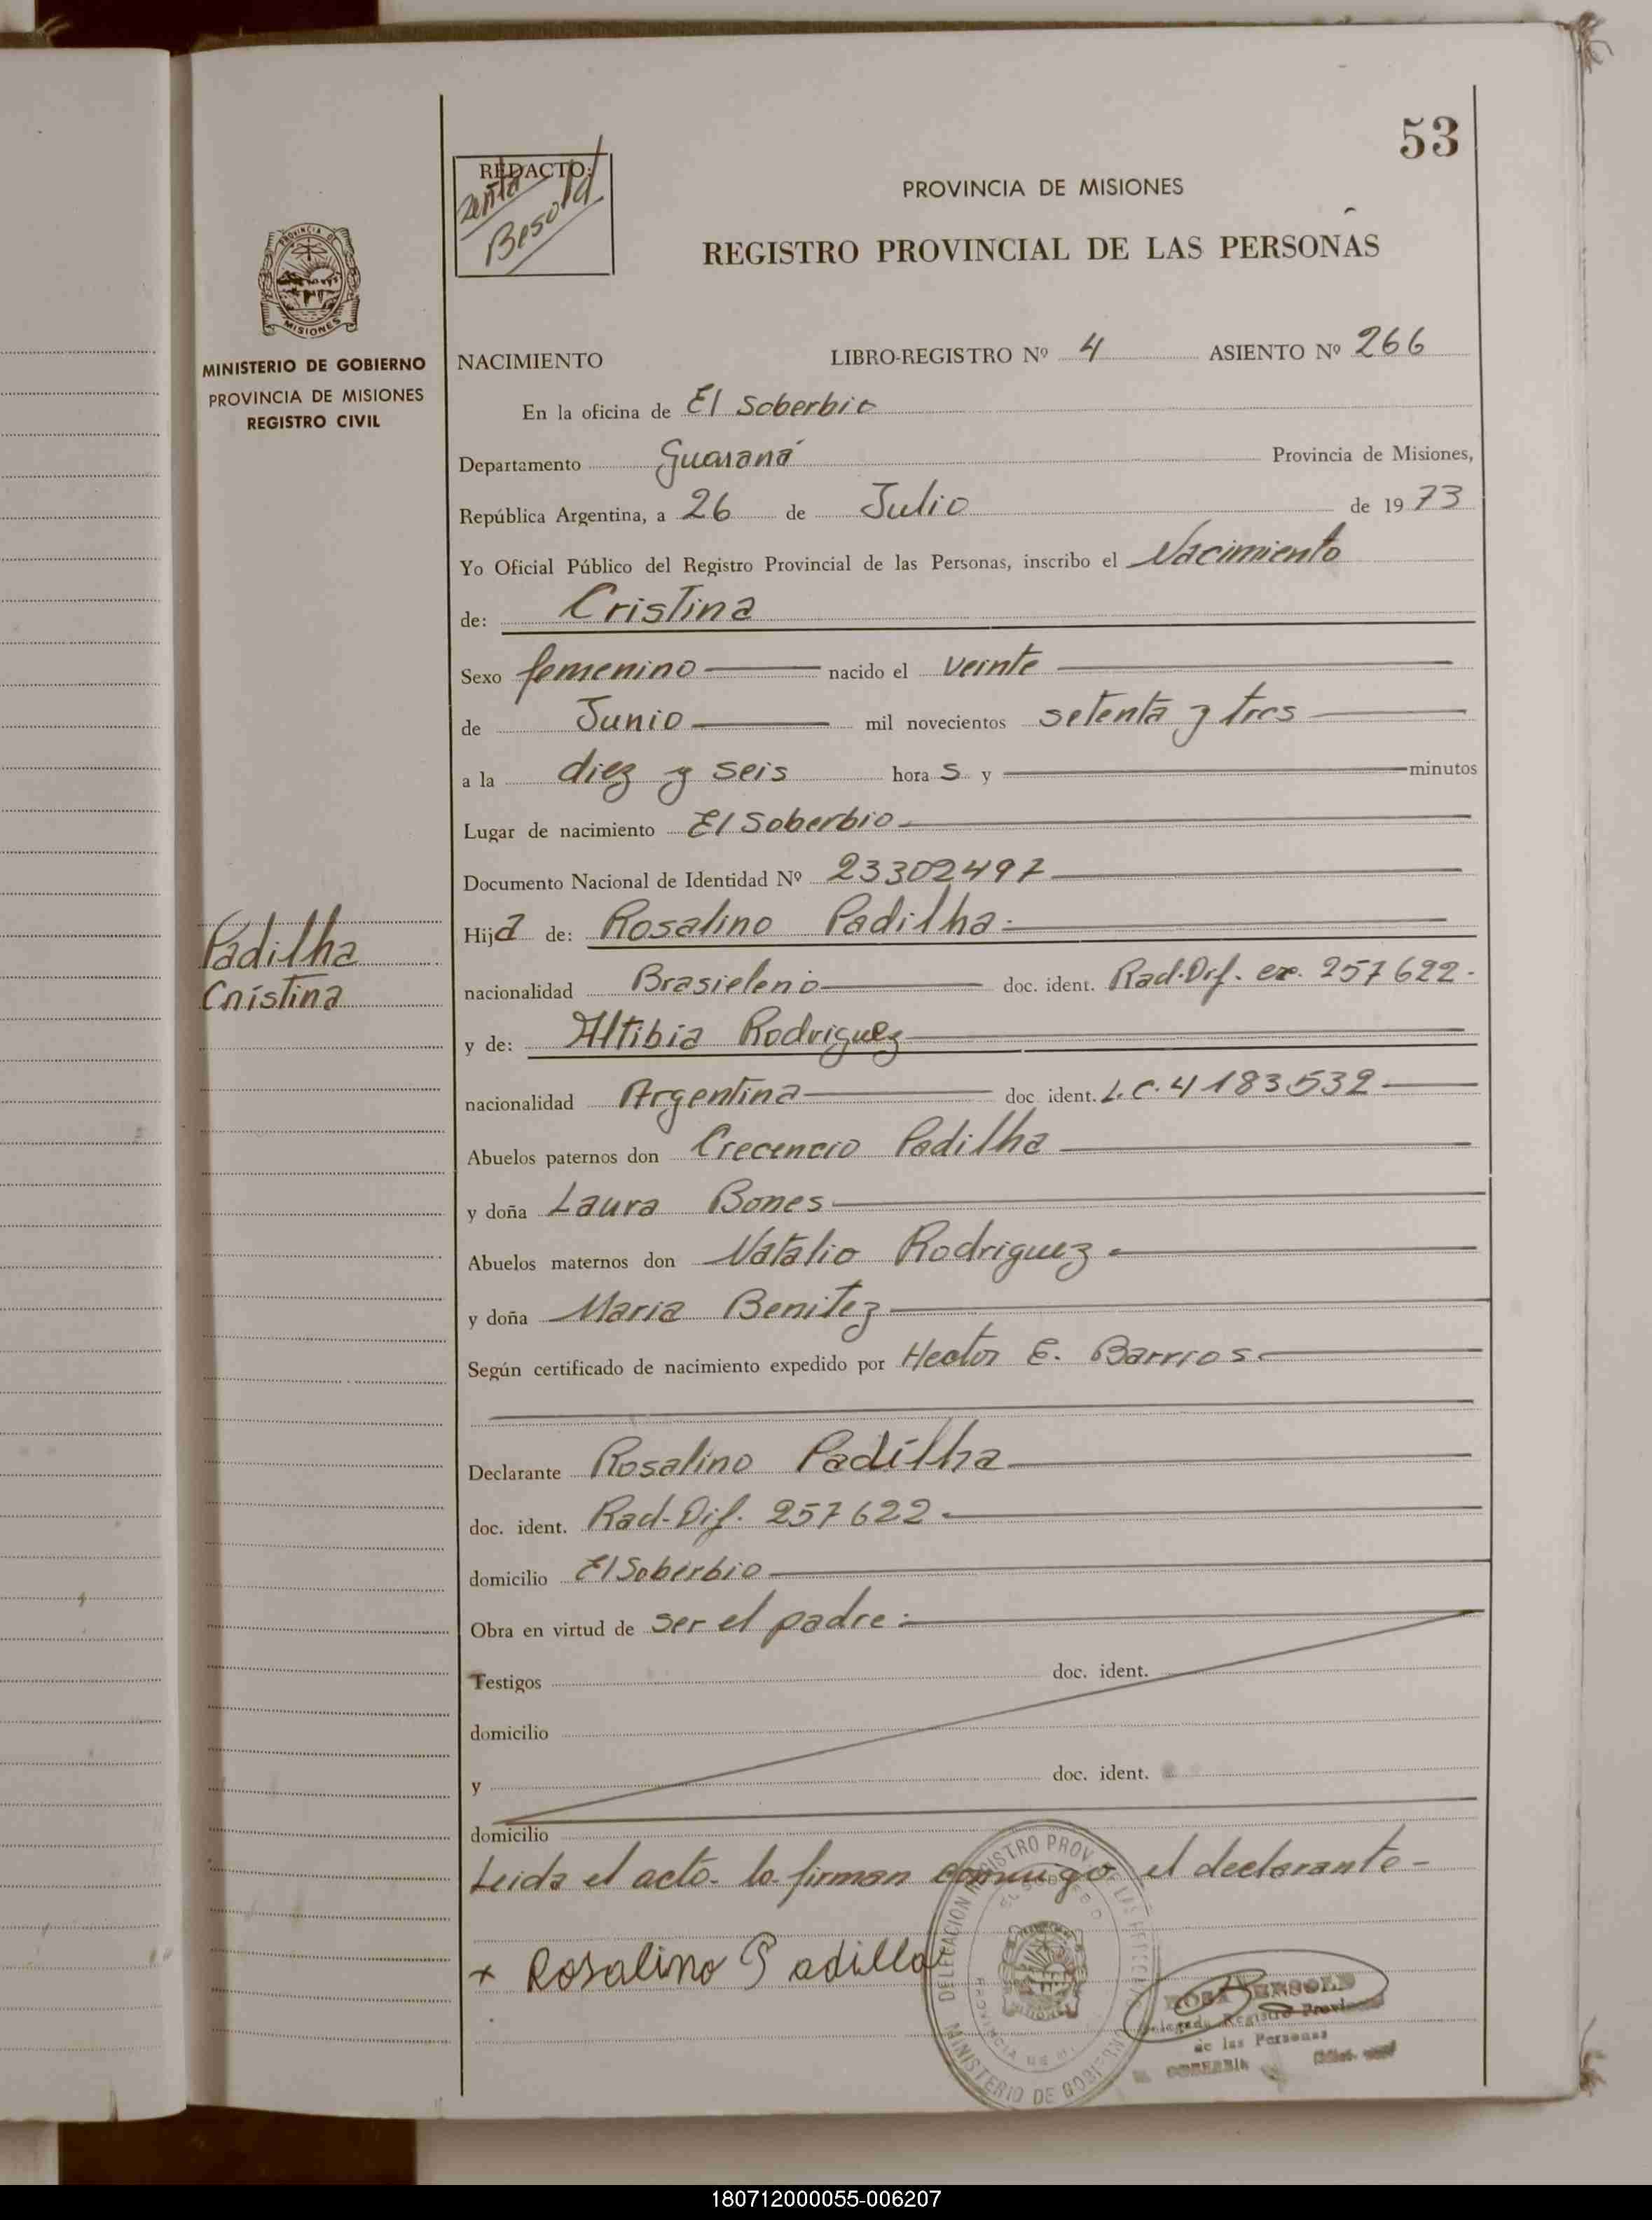 53
REDACTO:
Besold
PROVINCIA DE MISIONES
REGISTRO PROVINCIAL DE LAS PERSONAS
PROVINCIA DE
MISIONES
MINISTERIO DE GOBIERNO
PROVINCIA DE MISIONES
REGISTRO CIVIL
NACIMIENTO LIBRO-REGISTRO Nº 4 ASIENTO Nº 266
En la oficina de El Soberbio
Departamento Guaraná Provincia de Misiones,
República Argentina, a 26 de Julio de 1973
Yo Oficial Público del Registro Provincial de las Personas, inscribo el Nacimiento
de: Cristina
Sexo femenino nacido el veinte
de Junio mil novecientos setenta y tres
a la diez y seis hora s y minutos
Lugar de nacimiento El Soberbio
Documento Nacional de Identidad Nº 23302497
Hija de: Rosalino Padilha
Padilha
Cristina
nacionalidad Brasieleno doc. ident. Rad. Dif. ex. 257622.
y de: Altibia Rodriguez
nacionalidad Argentina doc. ident. L.C. 4183532
Abuelos paternos don Crecencio Padilha
y doña Laura Bones
Abuelos maternos don Natalio Rodriguez
y doña Maria Benitez
Según certificado de nacimiento expedido por Hector E. Barrios
Declarante Rosalino Padilha
doc. ident. Rad-Dif. 257622
domicilio El Soberbio
Obra en virtud de ser el padre
Testigos doc. ident.
domicilio
y doc. ident.
domicilio
Leida el acto lo firman conmigo el declarante
x Rosalino Padilla
DELEGACION REGISTRO PROV. DE LAS PERSONAS
EL SOBERBIO
PROVINCIA DE
MINISTERIO DE GOBIERNO
ROSA BESOLD
Registro Provincial
de las Personas
SOBERBIO
180712000055-006207